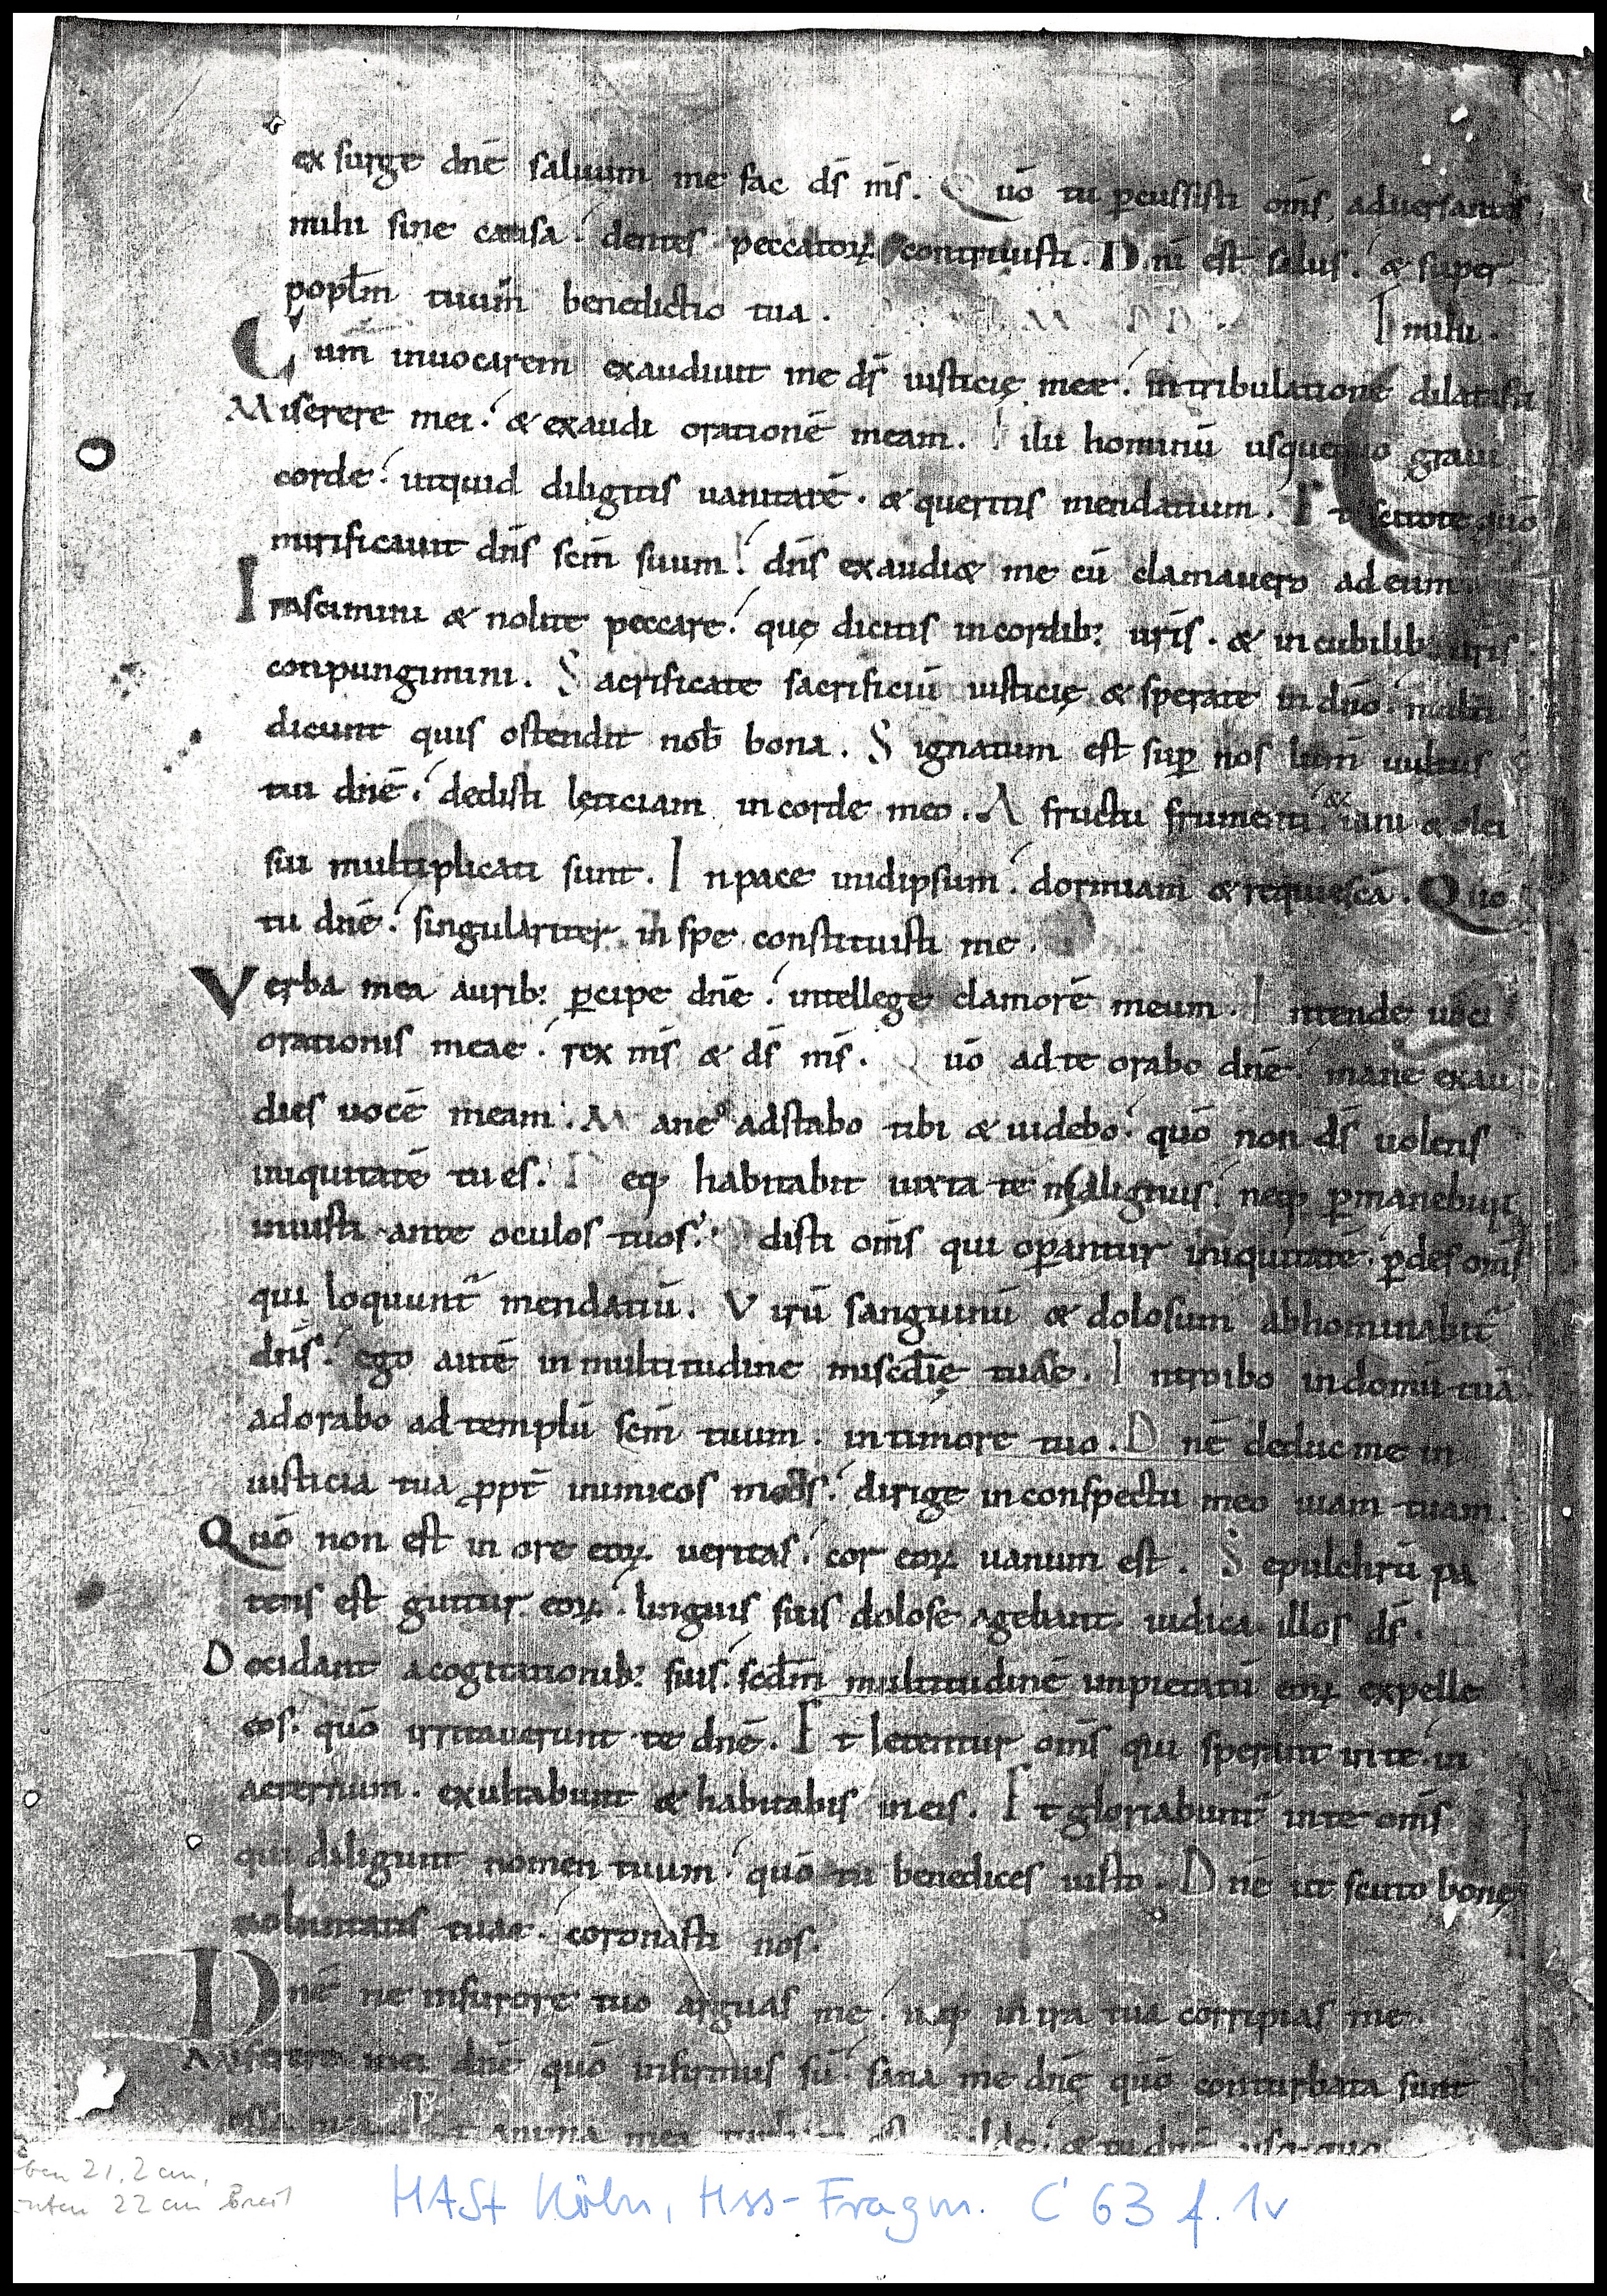 ex surge dnē saluum me fac ds̄ ms̄. Quō tu ꝑcussisti om̄s aduersantes
mihi sine causa. dentes peccatoꝝ contriuisti. Dn̄i est salus. & super
popl̄m tuum benedictio tua. mihi.
Cum inuocarem exaudiuit me ds̄ iusticię meę. intribulatione dilatasti
Miserere mei. & exaudi orationē meam. Filii hominū usquequo graui
corde. utquid diligitis uanitatē. & queritis mendatium. Et scitote quō
mirificauit dn̄s sc̄m suum. dn̄s exaudi& me cū clamauero adeum
Irascimini & nolite peccare. quę dicitis incordib: uris̄. & incubilib: uris̄
conpungimini. Sacrificate sacrificiū iusticię & sperate in dn̄o. multi
dicunt quis ostendit nob̄ bona. Signatum est suꝑ nos lum̄ uultus
tui dnē. dedisti lęticiam incorde meo. A fructu frumenti & uini & olei
sui multiplicati sunt. Inpace inidipsum. dormiam & requiescā. Quō
tu dnē. singulariter in spe constituisti me.
Verba mea aurib: ꝑcipe dnē. intellege clamorē meum. Intende uoci
orationis meae. rex ms̄ & ds̄ ms̄. Quō adte orabo dnē. mane exau
dies uocē meam. Mane adstabo tibi & uidebo. quō non ds̄ uolens
iniquitatē tu es. Neqꝫ habitabit iuxta te malignus. neqꝫ ꝑmanebunt
iniusti ante oculos tuos. disti om̄s qui oꝑantur iniquitatē. ꝑdes om̄s
qui loquunt̄ mendatiū. Virū sanguinū & dolosum abhominabit̄
dn̄s. ego autē in multitudine misc̄dię tuae. Introibo indomū tuā
adorabo ad templū sc̄m tuum. in timore tuo. Dnē deduc me in
iusticia tua ꝓpt̄ inimicos meos. dirige inconspectu meo uiam tuam.
Quō non est in ore eoꝝ ueritas. cor eoꝝ uanum est. Sepulchrū pa
tens est guttur eoꝝ. linguis suis dolose agebant. iudica illos ds̄.
Decidant acogitationib: suis. scdm̄ multitudinē impietatū eoꝝ expelle
eos. quō irritauerunt te dnē. Et letentur om̄s qui sperant in te. in
aeternum. exultabunt & habitabis in eis. Et gloriabunt̄ inte om̄s
qui diligunt nomen tuum. quō tu benedices iusto. Dnē ut scuto bonę
uoluntatis tuae. coronasti nos.
Dnē ne infurore tuo arguas me. neqꝫ in ira tua corripias me.
Miserere mei dnē quō infirmus sū. sana me dnē quō conturbata sunt
ossa mea. Et anima mea & tu dnē usquequo
21,2 cm,
unten 22 cm breit
HASt Köln, Hss-Fragm. C 63 f. 1v